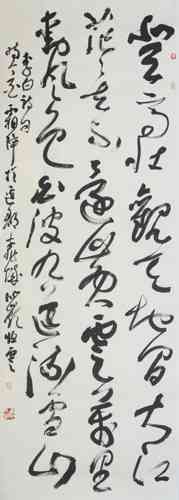 登高壯觀天地間大江
茫茫去不還黃雲萬里
動風色白波九道流雪山
李白詩句
霜降於